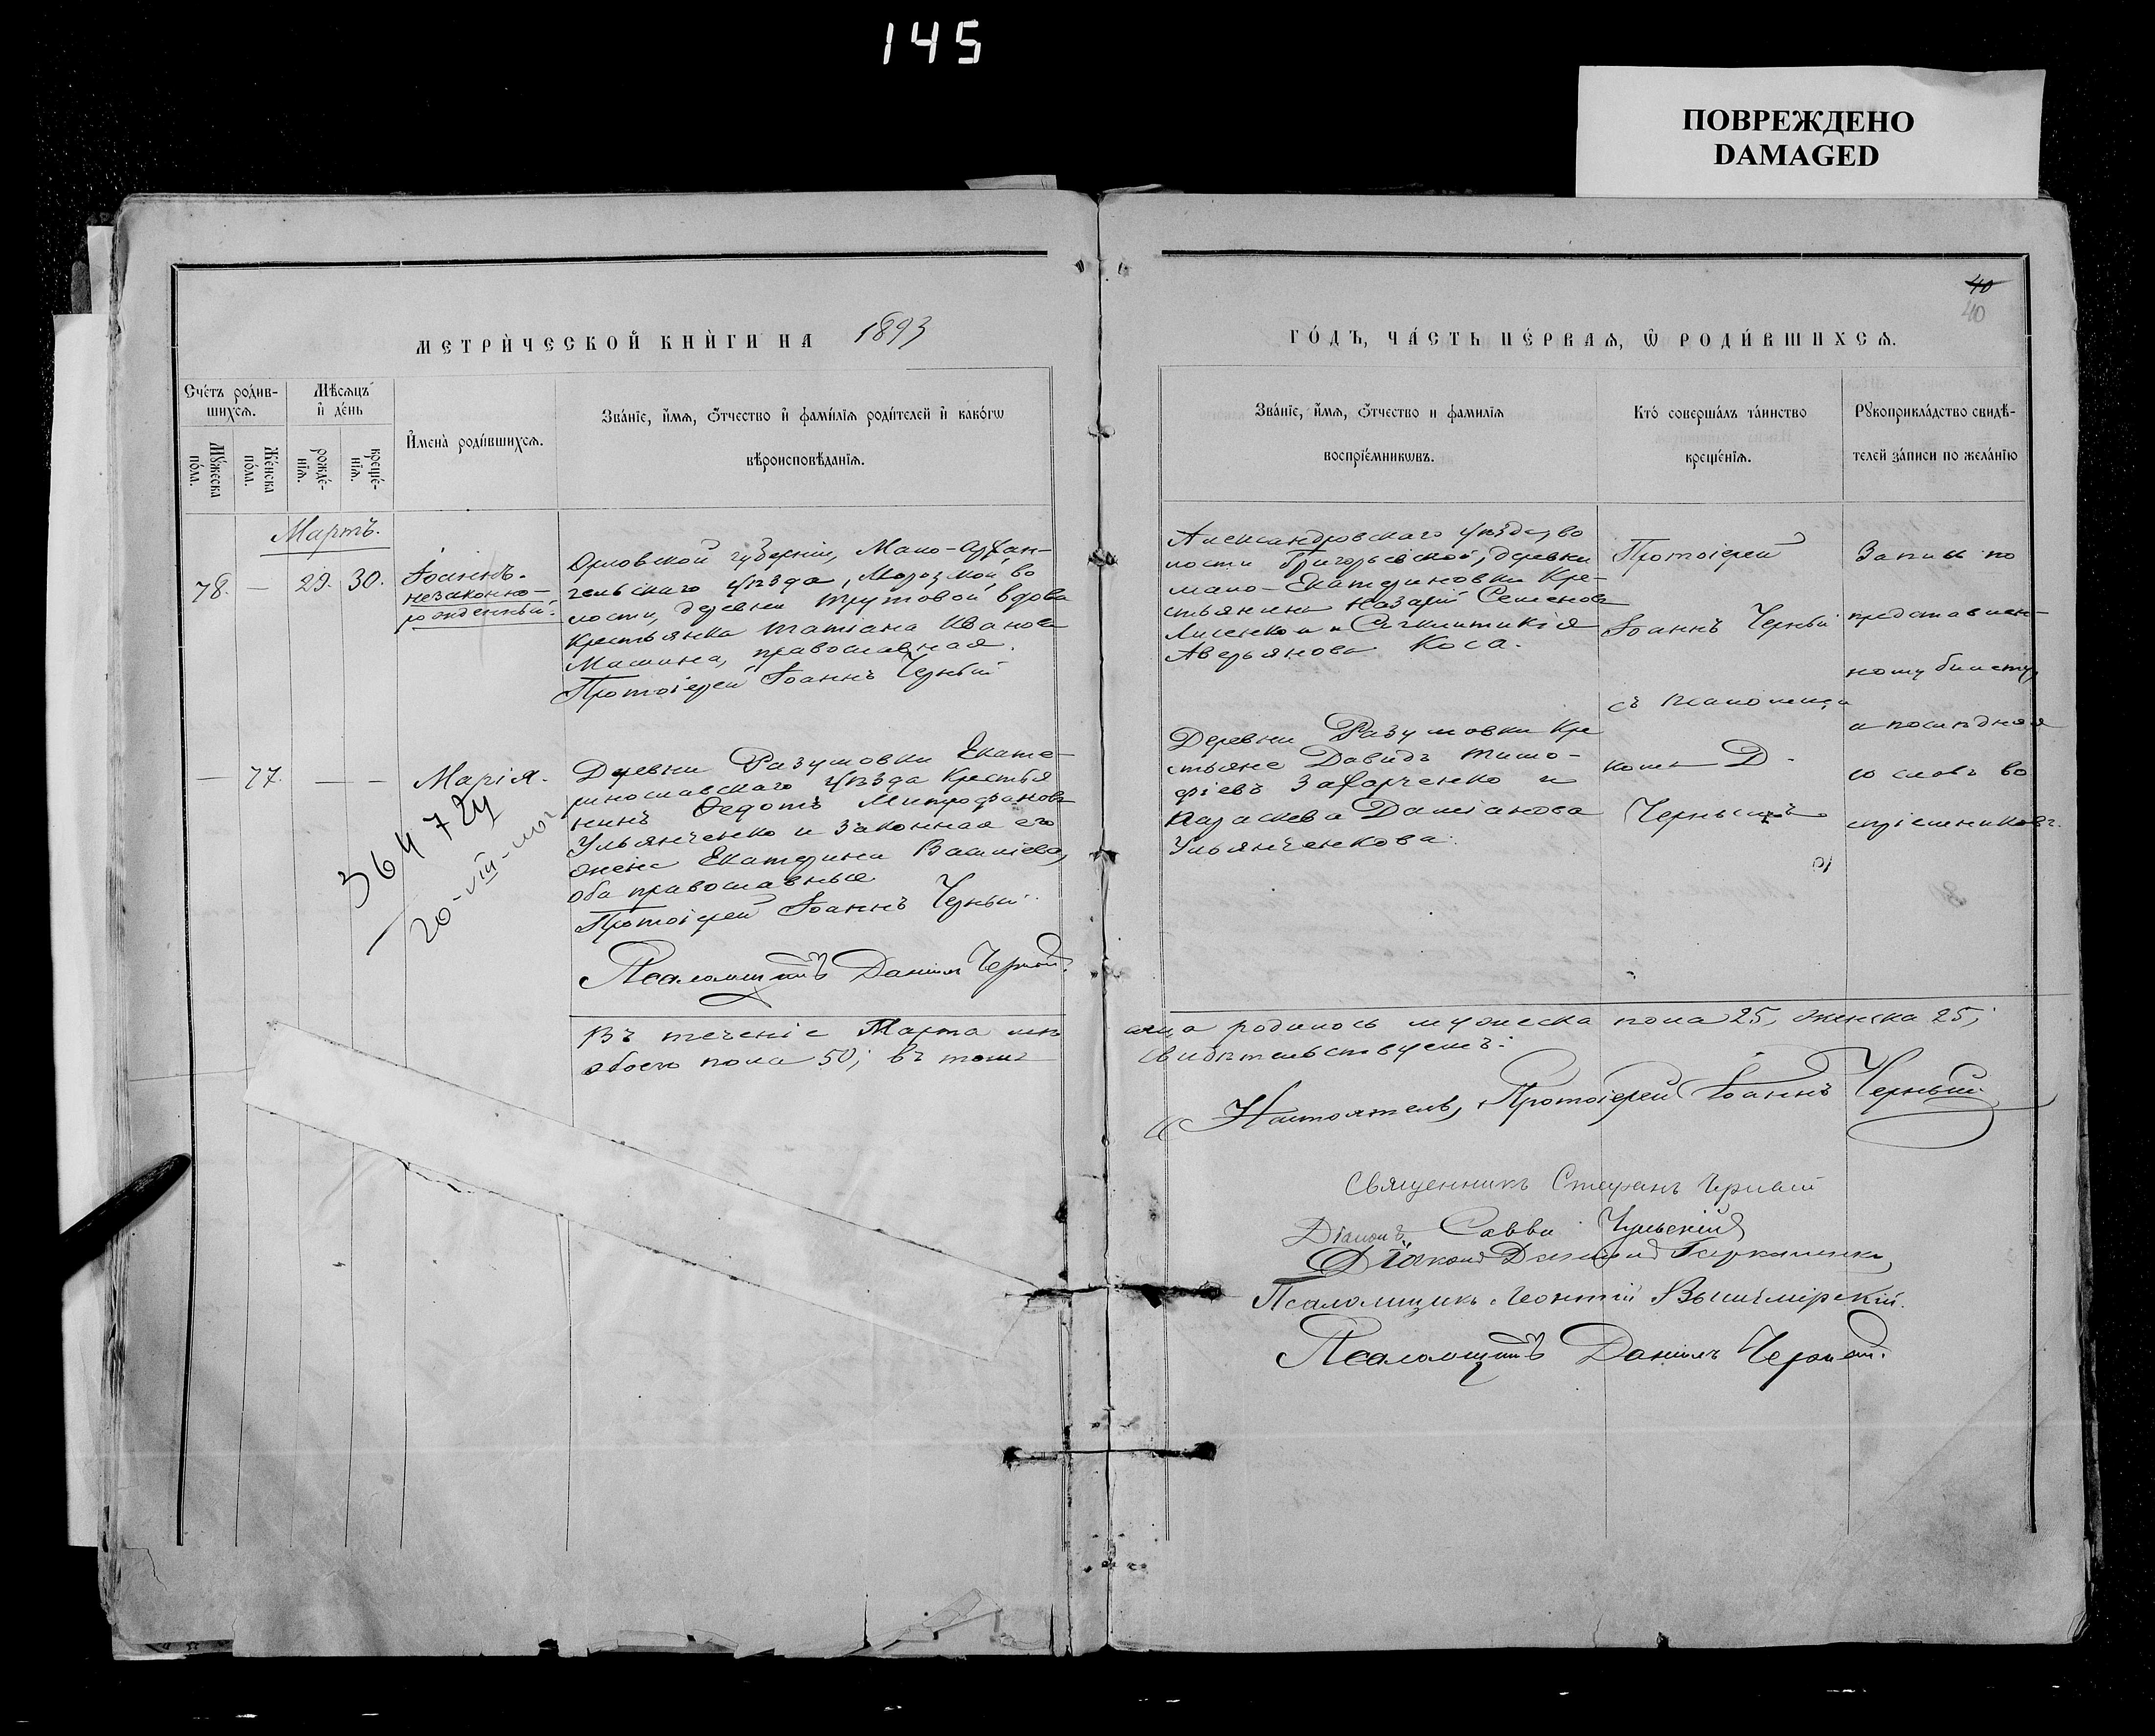 145
ПОВРЕЖДЕНО
DAMAGED
40
40
МЕТРИ́ЧЕСКОЙ КНИ́ГИ НА 1893
ГО́ДЪ, ЧА́СТЬ ПЕ́РВАѦ, Ѽ РОДИ́ВШИХСѦ.
Сче́тъ роди́в-
шихсѧ.
Мꙋ́жеска
по́ла.
Же́нска
по́ла.
Мѣ́сѧцъ
и҆ де́нь
рожде́-
нїѧ.
креще́-
нїѧ.
И҆мена̀ роди́вшихсѧ.
Зва́нїе, и҆́мѧ, ѻ҆́тчество и҆ фами́лїѧ роди́телей и҆ како́гѡ
вѣроисповѣ́данїѧ.
Зва́нїе, и҆́мѧ, ѻ҆́тчество и фамилїѧ
воспрїе́мникѡвъ.
Кто́ соверша́лъ та́инство
креще́нїѧ.
Рꙋкоприкла́дство свидѣ́-
телей за́писи по жела́нїю
Мартъ.
78. — 29. 30.
Іоаннъ.
незаконно-
рожденный.
Орловской губерніи, Мало-Архан-
гельскаго уѣзда, во
лости, деревни Трутовой вдова
крестьянка Татіана Иванова
Машина, православная.
Протоіерей Іоаннъ Черный
Александровскаго уѣзда, во
лости Григорьевской, деревни
мало-Екатериновки кре-
стьянинъ Назарій Семеновъ
Лисенко и Сигклитикія
Аверьянова Коса.
Протоіерей
Іоаннъ Черный
съ псаломщи
комъ Д.
Чернымъ
Запись по
представлен-
ному билету,
а послѣдняя
со словъ во
спріемниковъ.
— 77. — —
Марія.
Деревни Разумовки Екате-
ринославскаго уѣзда крестья
нинъ Ѳедотъ Митрофановъ
Ульянченко и законная его
жена Екатерина Василіева,
оба православные.
Протоіерей Іоаннъ Черный.
Псаломщикъ Даніилъ Черный.
20-VIII-
Деревни Разумовки кре
стьяне Давидъ Тимо-
фіевъ Захарченко и
Параскева Даміанова
Ульянченкова.
Въ теченіе Марта мѣ
сяца родилось мужеска пола 25, женска 25,
обоего пола 50; въ томъ
свидѣтельствуемъ:
Настоятель, Протоіерей Іоаннъ Черный
Священникъ Стефанъ Черный
Діаконъ Савва
Діаконъ
Псаломщикъ Леонтій
Псаломщикъ Даніилъ Черный.